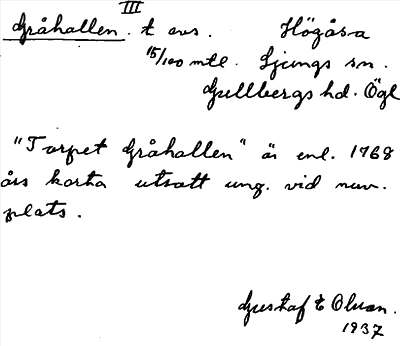 III
Gråhallen. t avs. Högåsa
15/100 mtl. Ljungs sn.
Gullbergs hd. Ögl
"Torpet Gråhallen" är enl. 1768
års karta utsatt ung. vid nuv.
plats.
Gustaf E Olsson.
1937